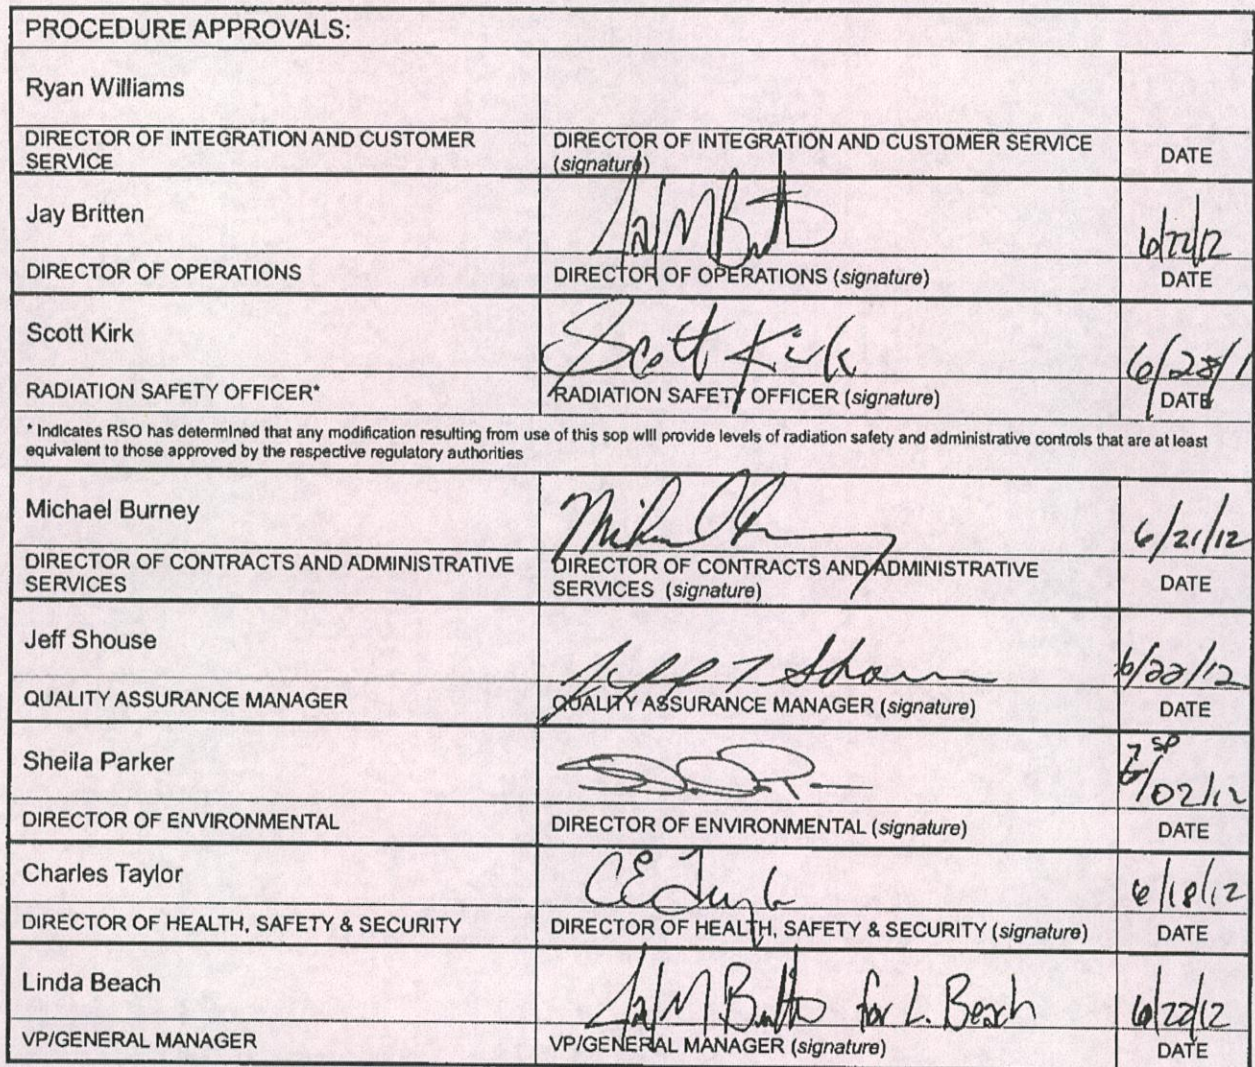 PROCEDURE APPROVALS:
Ryan Williams
DIRECTOR OF INTEGRATION AND CUSTOMER
SERVICE
DIRECTOR OF INTEGRATION AND CUSTOMER SERVICE
(signature)
DATE
Jay Britten
Jay M Britt
6/22/12
DIRECTOR OF OPERATIONS
DIRECTOR OF OPERATIONS (signature)
DATE
Scott Kirk
Scott Kirk
6/28/1
RADIATION SAFETY OFFICER*
RADIATION SAFETY OFFICER (signature)
DATE
* Indicates RSO has determined that any modification resulting from use of this sop will provide levels of radiation safety and administrative controls that are at least
equivalent to those approved by the respective regulatory authorities
Michael Burney
6/21/12
DIRECTOR OF CONTRACTS AND ADMINISTRATIVE
SERVICES
DIRECTOR OF CONTRACTS AND ADMINISTRATIVE
SERVICES (signature)
DATE
Jeff Shouse
Jeff T Shouse
6/22/12
QUALITY ASSURANCE MANAGER
QUALITY ASSURANCE MANAGER (signature)
DATE
Sheila Parker
7 SP
6/02/12
DIRECTOR OF ENVIRONMENTAL
DIRECTOR OF ENVIRONMENTAL (signature)
DATE
Charles Taylor
CE Taylor
6/18/12
DIRECTOR OF HEALTH, SAFETY & SECURITY
DIRECTOR OF HEALTH, SAFETY & SECURITY (signature)
DATE
Linda Beach
Jay M Britt for L. Beach
6/22/12
VP/GENERAL MANAGER
VP/GENERAL MANAGER (signature)
DATE